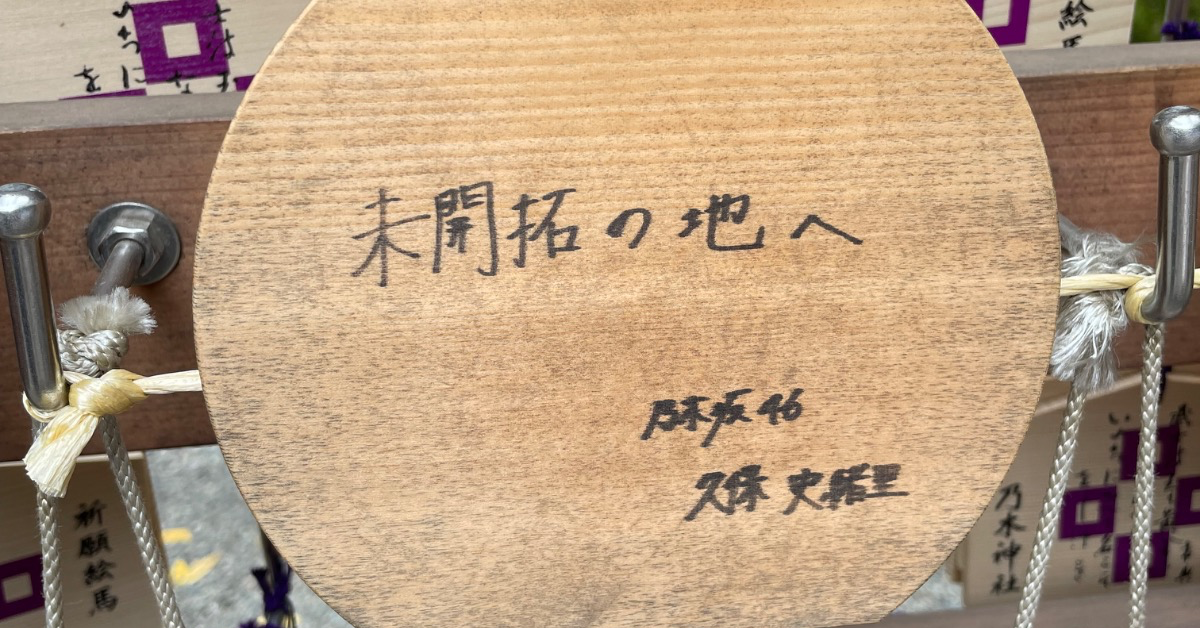 未開拓の地へ
乃木坂46
久保 史緒里
祈願絵馬
乃木神社
絵馬